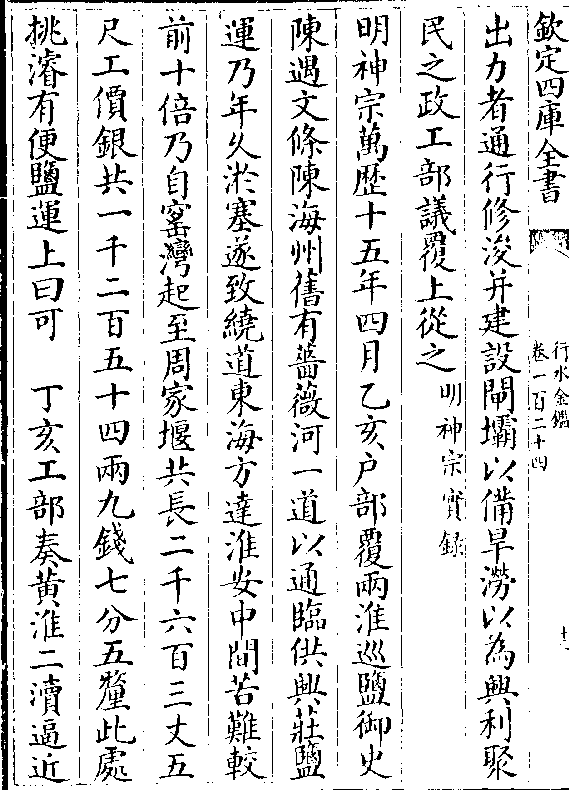 欽定四庫全書
行水金鑑
卷一百二十四
出力者通行修浚并建設閘壩以備旱澇以為興利聚
民之政工部議覆上從之明神宗實錄
明神宗萬歴十五年四月乙亥户部覆兩淮巡鹽御史
陳遇文條陳海州舊有薔薇河一道以通臨供興莊鹽
運乃年久淤塞遂致繞道東海方達淮安中間苦難較
前十倍乃自窰灣起至周家堰共長二千六百三丈五
尺工價銀共一千二百五十四兩九錢七分五釐此處
挑濬有便鹽運上曰可　丁亥工部奏黄淮二瀆逼近